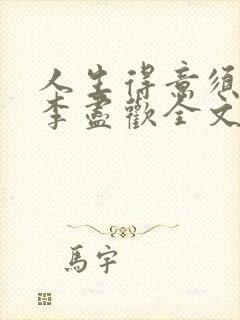 人生得意須
李盡歡全文
馬宇